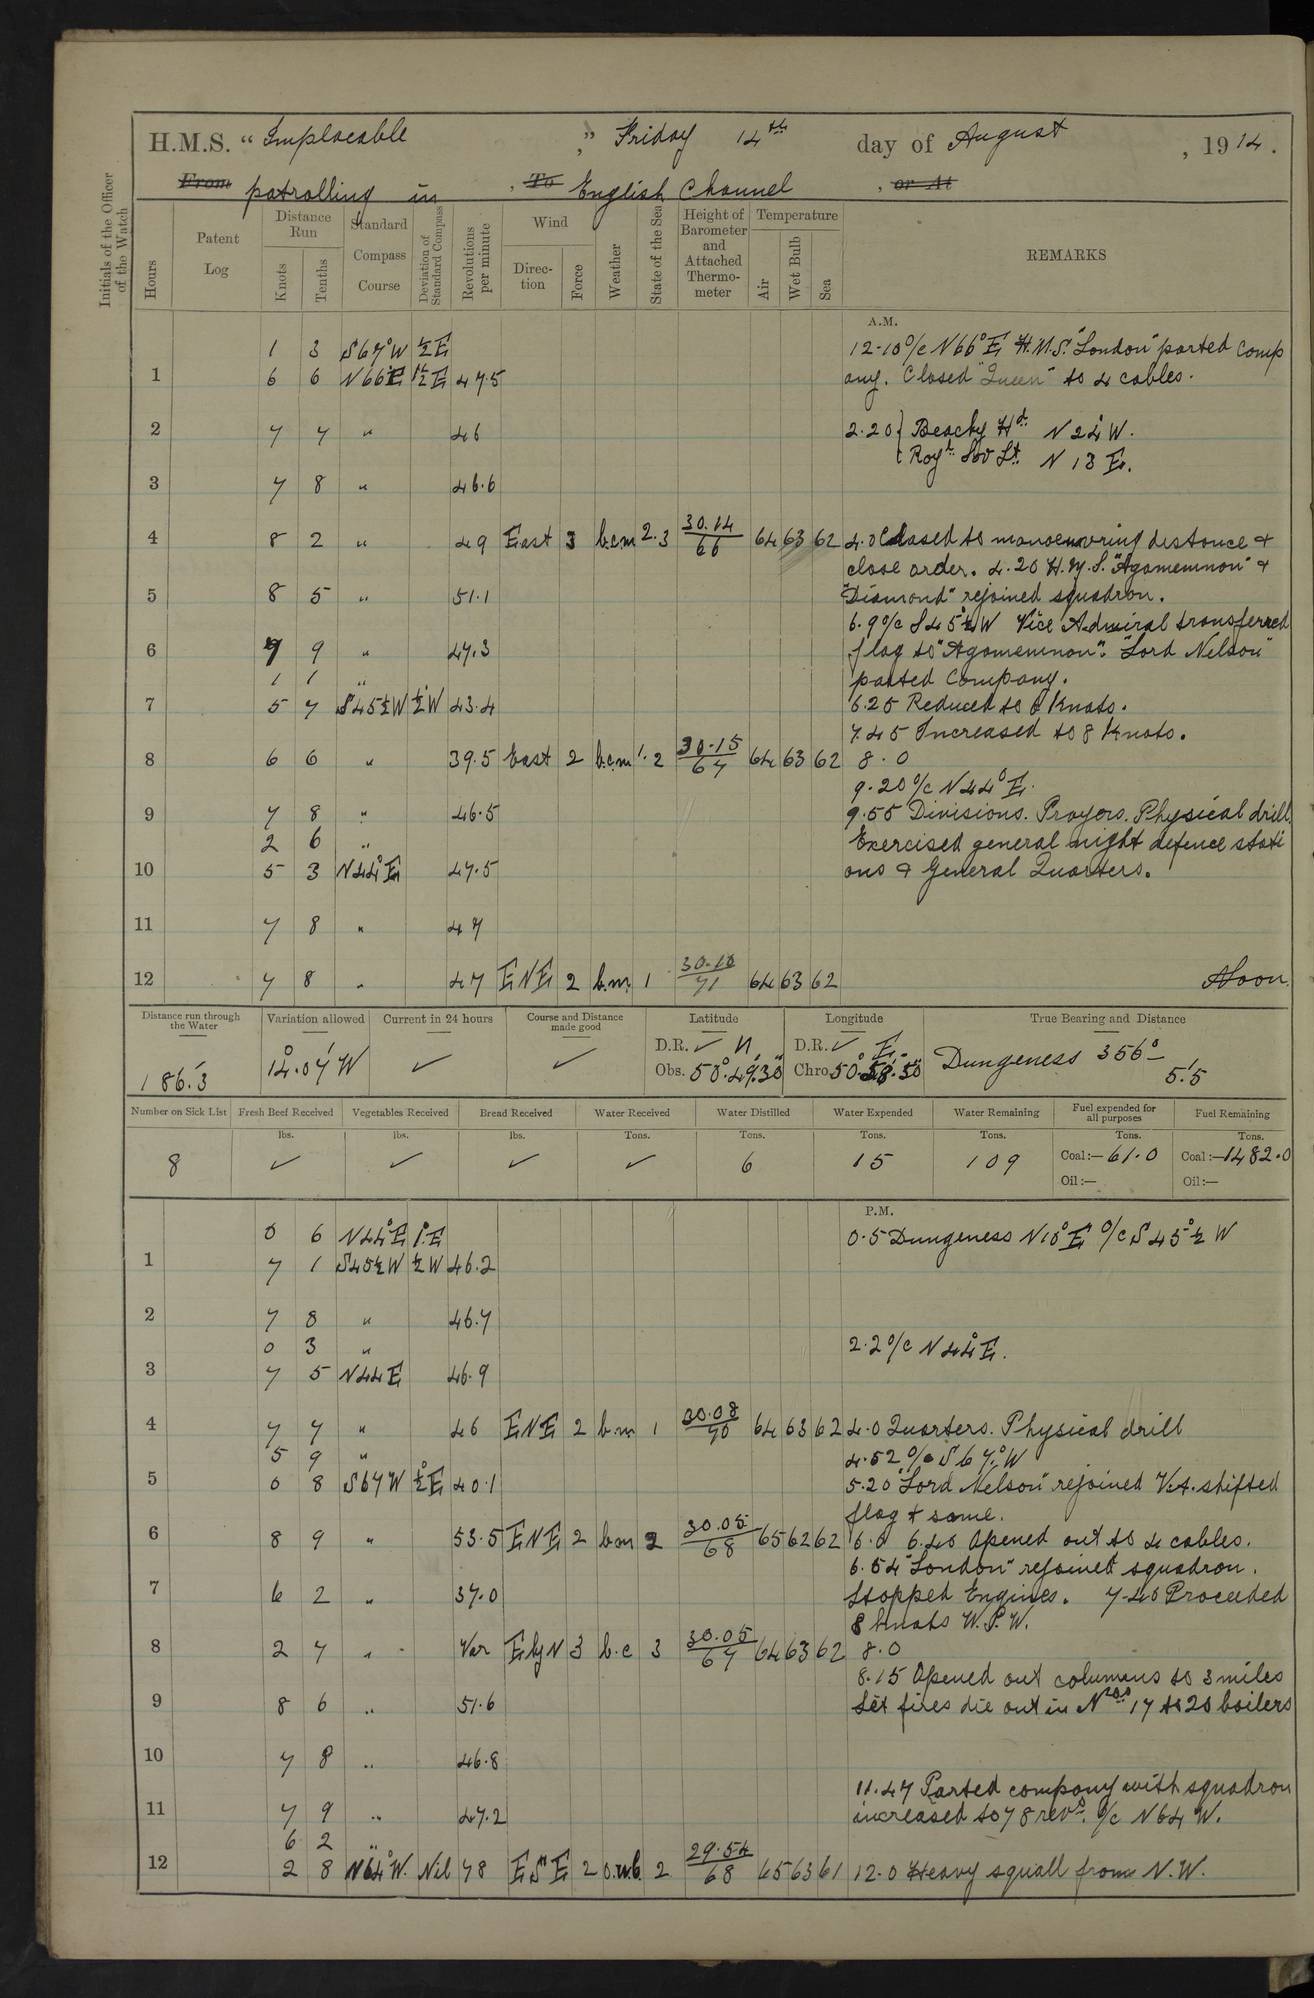 H.M.S. " Implacable ," Friday 14th day of August , 1914.
From patrolling in , To English Channel , or At
Initials of the Officer of the Watch
Hours
Patent Log
Distance Run
Knots
Tenths
Standard Compass Course
Deviation of Standard Compass
Revolutions per minute
Wind
Direction
Force
Weather
State of the Sea
Height of Barometer and Attached Thermometer
Temperature
Air
Wet Bulb
Sea
REMARKS
A.M.
1 3 S67°W ½E 12-10 o/c N66°E H.M.S. "London" parted comp
1 6 6 N66°E 1½E 47.5 any. Closed "Queen" to 4 cables.
2 7 7 " 46 2.20 { Beachy Hd N24°W.
{ Royl Sov Lt N 13 E.
3 7 8 " 46.6
4 8 2 " 49 East 3 b.c.m 2.3 30.14/66 64 63 62 4.0 Closed to manoeuvring distance &
close order. 4.20 H.M.S. "Agamemnon" &
5 8 5 " 51.1 "Diamond" rejoined squadron.
6.9 o/c S45½°W Vice Admiral transferred
6 7 9 " 47.3 flag to "Agamemnon". "Lord Nelson"
1 1 " parted company.
7 5 7 S45½W ½°W 43.4 6.25 Reduced to 6 knots.
7.45 Increased to 8 knots.
8 6 6 " 39.5 East 2 b.c.m 1.2 30.15/67 64 63 62 8.0
9.20 o/c N44°E.
9 7 8 " 46.5 9.55 Divisions. Prayers. Physical drill.
2 6 " Exercised general night defence stati
10 5 3 N44°E 47.5 ons & General Quarters.
11 7 8 " 47
12 7 8 " 47 ENE 2 b.m. 1 30.10/71 64 63 62 Noon
Distance run through the Water
Variation allowed
Current in 24 hours
Course and Distance made good
Latitude
Longitude
True Bearing and Distance
186.3
14°.04' W
✓
✓
D.R. ✓ N
Obs. 50°.49'.30"
D.R. ✓ E
Chro. 50.58'.50"
Dungeness 356° – 5'.5
Number on Sick List
Fresh Beef Received
Vegetables Received
Bread Received
Water Received
Water Distilled
Water Expended
Water Remaining
Fuel expended for all purposes
Fuel Remaining
lbs. lbs. lbs. Tons. Tons. Tons. Tons. Tons. Tons.
8 ✓ ✓ ✓ ✓ 6 15 109 Coal:—61.0 Coal:—1482.0
Oil:— Oil:—
P.M.
0 6 N44°E 1°.E 0.5 Dungeness N10°E o/c S45°½ W
1 7 1 S45½W ½W 46.2
2 7 8 " 46.7
0 3 " 2.2 o/c N44°E.
3 7 5 N44E 46.9
4 7 7 " 46 ENE 2 b.m 1 30.08/70 64 63 62 4.0 Quarters. Physical drill
5 9 " 4.52 o/c S67°W
5 0 8 S67W ½°E 40.1 5.20 "Lord Nelson" rejoined V.A. shifted
flag t same.
6 8 9 " 53.5 ENE 2 b.m 2 30.05/68 65 62 62 6.0 6.40 Opened out to 4 cables.
6.54 "London" rejoined squadron.
7 6 2 " 37.0 Stopped Engines. 7-40 Proceeded
8 knots W.S.W.
8 2 7 " Var E by N 3 b.c 3 30.05/67 64 63 62 8.0
8.15 Opened out columns to 3 miles
9 8 6 " 51.6 Let fires die out in Nos 17 to 20 boilers
10 7 8 " 46.8
11.47 Parted company with squadron
11 7 9 " 47.2 increased to 78 revs. o/c N64 W.
6 2 "
12 2 8 N64°W. Nil 78 ESE 2 29.54/68 65 63 61 12.0 Heavy squall from N.W.